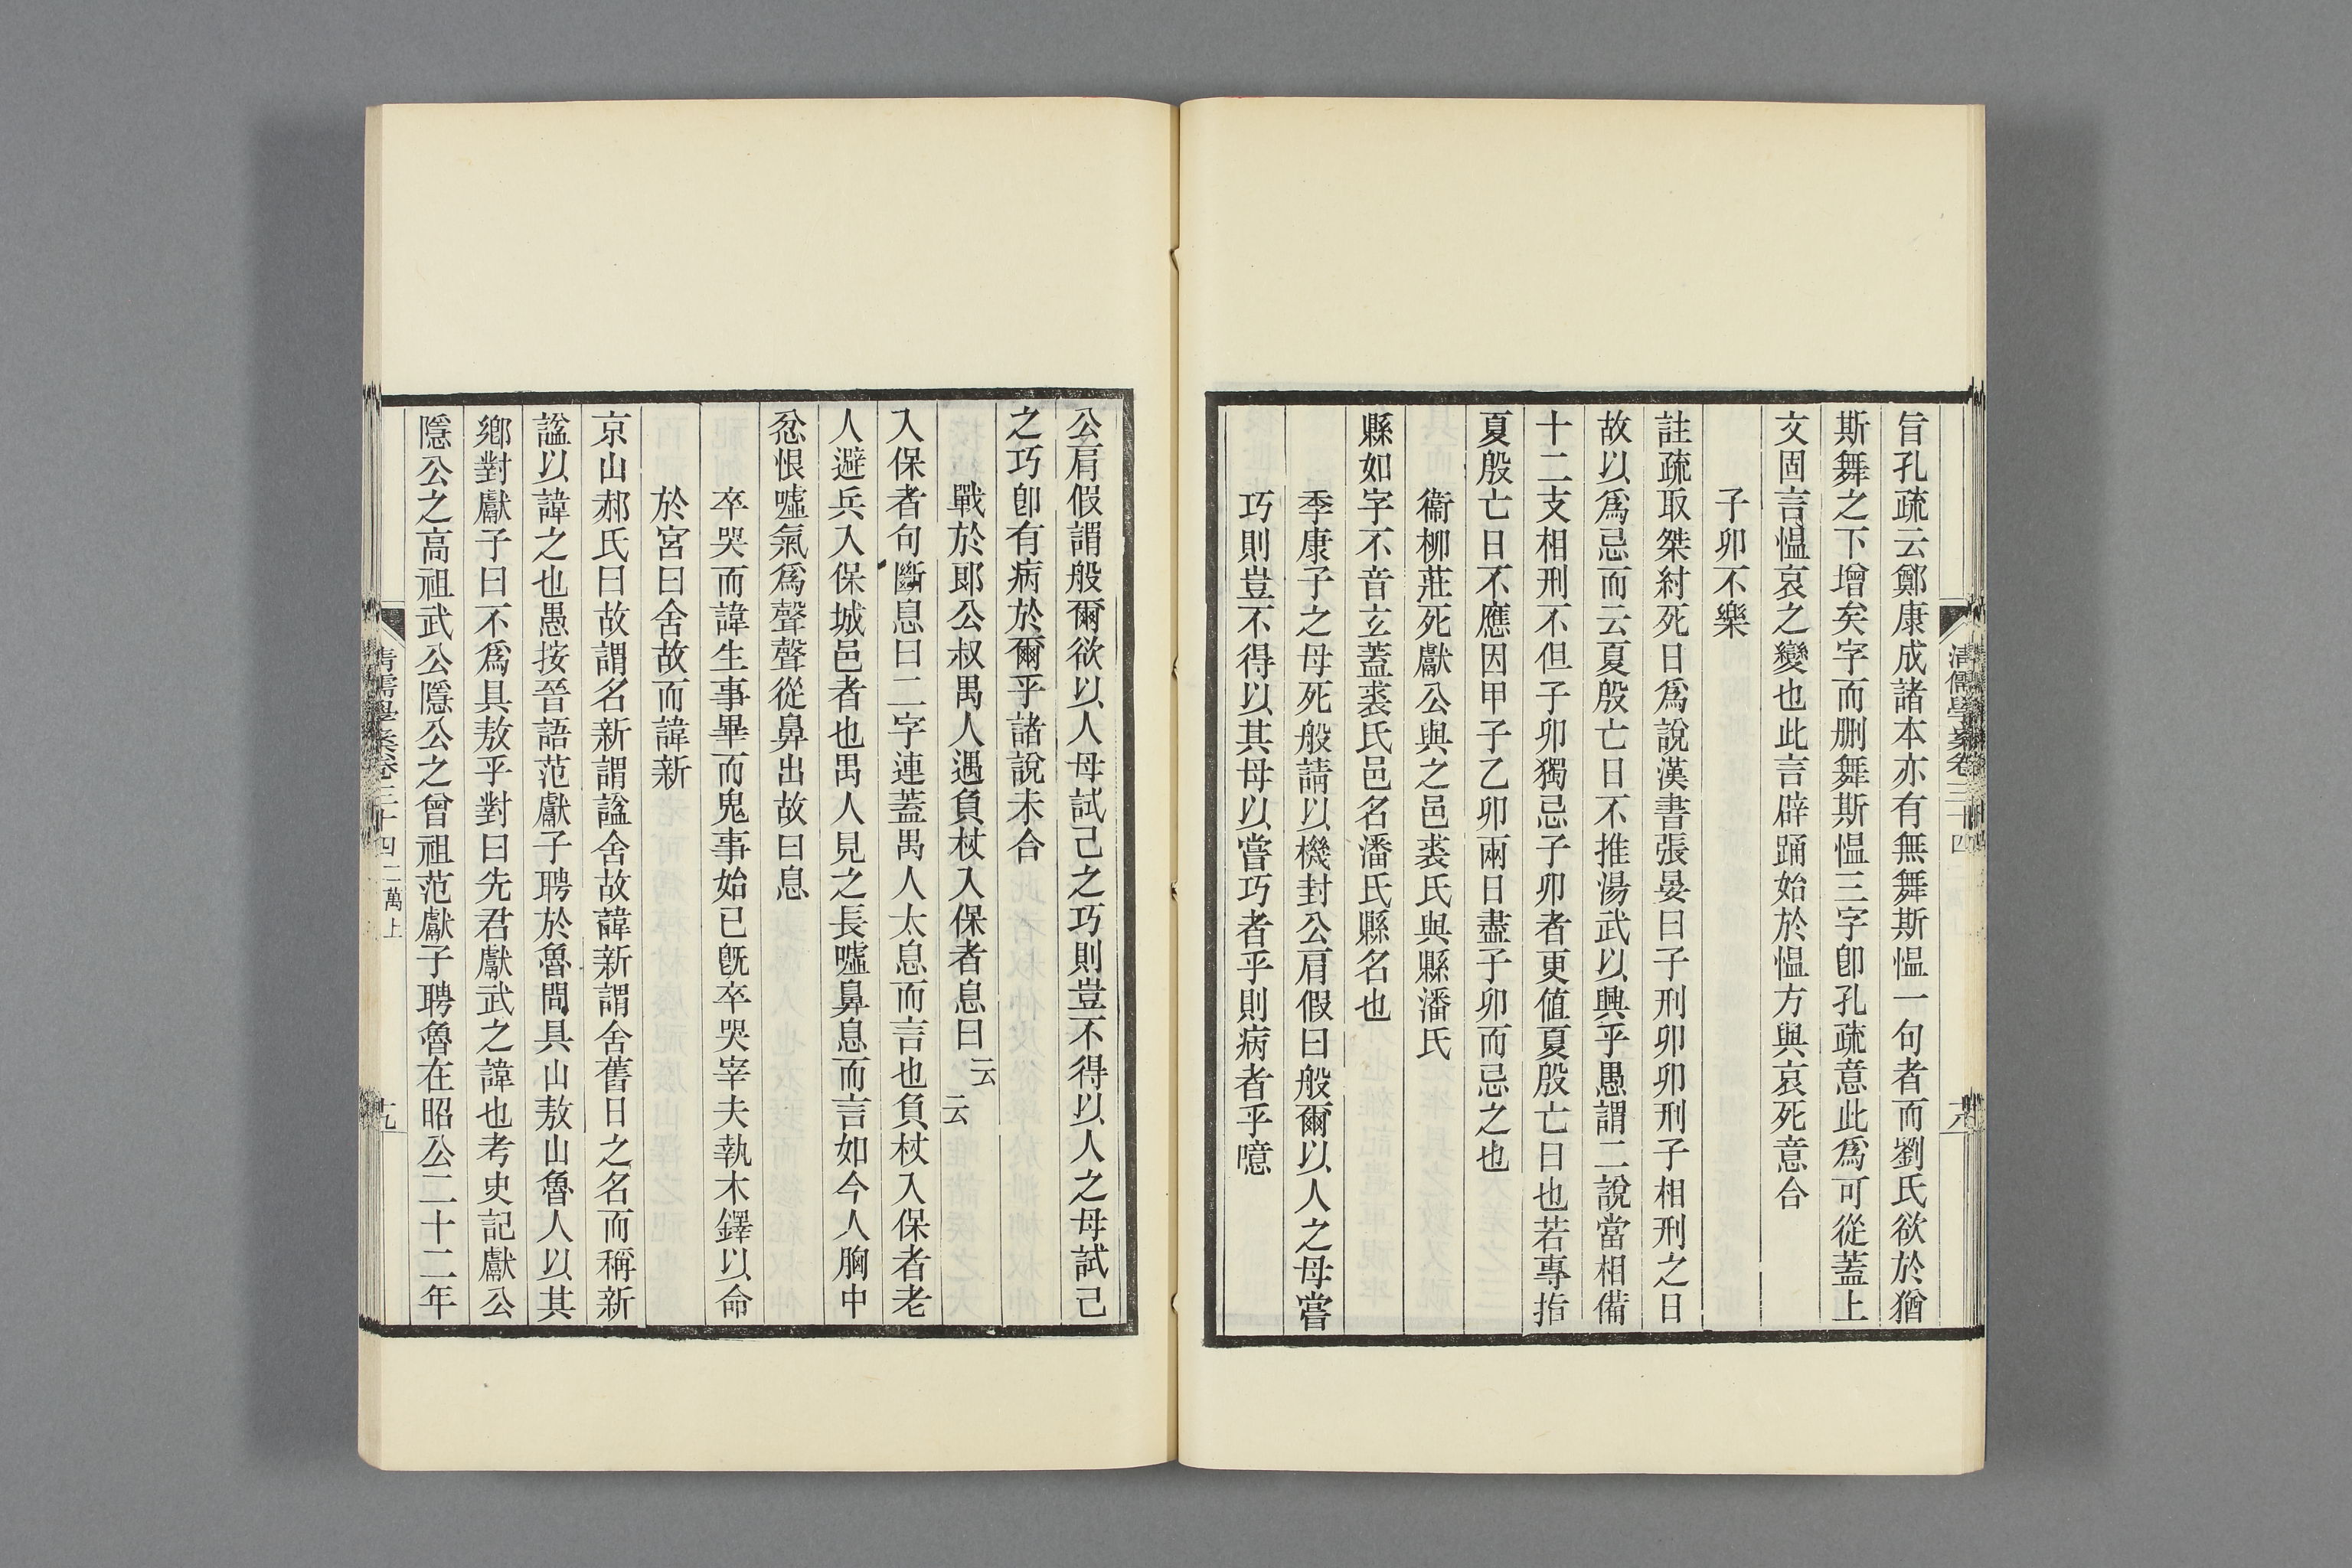 清儒學案卷三十四
十八
旨孔疏云鄭康成諸本亦有無舞斯愠一句者而劉氏欲於猶
斯舞之下增矣字而刪舞斯愠三字卽孔疏意此爲可從蓋上
文固言愠哀之變也此言辟踊始於愠方與哀死意合
子卯不樂
註疏取桀紂死日爲說漢書張晏曰子刑卯卯刑子相刑之日
故以爲忌而云夏殷亡日不推湯武以興乎愚謂二說當相備
十二支相刑不但子卯獨忌子卯者更値夏殷亡日也若專指
夏殷亡日不應因甲子乙卯兩日盡子卯而忌之也
衞柳莊死獻公與之邑裘氏與縣潘氏
縣如字不音玄蓋裘氏邑名潘氏縣名也
季康子之母死般請以機封公肩假曰般爾以人之母嘗
巧則豈不得以其母以嘗巧者乎則病者乎噫
公肩假謂般爾欲以人母試己之巧則豈不得以人之母試己
之巧卽有病於爾乎諸說未合
戰於郞公叔禺人遇負杖入保者息曰云云
入保者句斷息曰二字連蓋禺人太息而言也負杖入保者老
人避兵入保城邑者也禺人見之長噓鼻息而言如今人胸中
忿恨噓氣爲聲聲從鼻出故曰息
卒哭而諱生事畢而鬼事始已旣卒哭宰夫執木鐸以命
於宮曰舍故而諱新
京山郝氏曰故謂名新謂諡舍故諱新謂舍舊日之名而稱新
諡以諱之也愚按晉語范獻子聘於魯問具山敖山魯人以其
鄕對獻子曰不爲具敖乎對曰先君獻武之諱也考史記獻公
隱公之高祖武公隱公之曾祖范獻子聘魯在昭公二十二年
清儒學案卷三十四 二萬上
十九